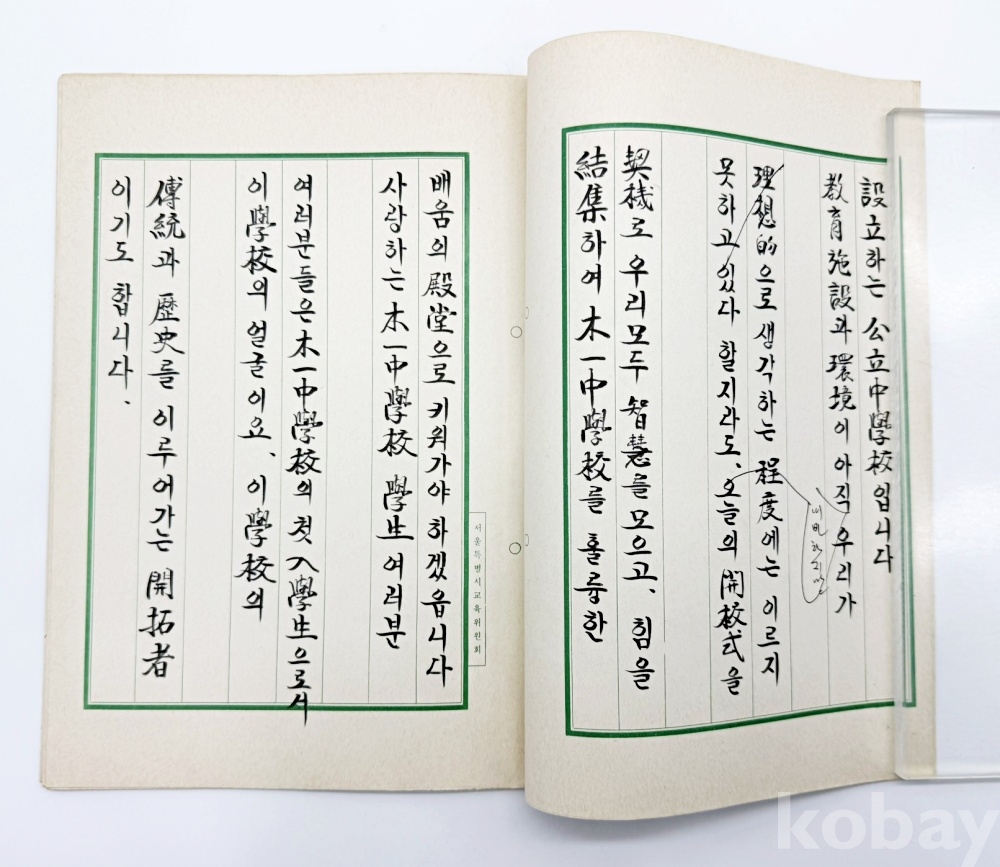 設立하는 公立中學校입니다
教育施設과 環境이 아직 우리가
理想的으로 생각하는 程度에는 이르지
못하고 있다 할지라도、오늘의 開校式을
契機로 우리모두 智慧를 모으고、힘을
結集하여 木一中學校를 훌륭한
배움의 殿堂으로 키워가야 하겠읍니다
사랑하는 木一中學校 學生 여러분
여러분들은 木一中學校의 첫 入學生으로서
이 學校의 얼굴이요、이 學校의
傳統과 歷史를 이루어가는 開拓者
이기도 합니다.
서울특별시교육위원회
kobay